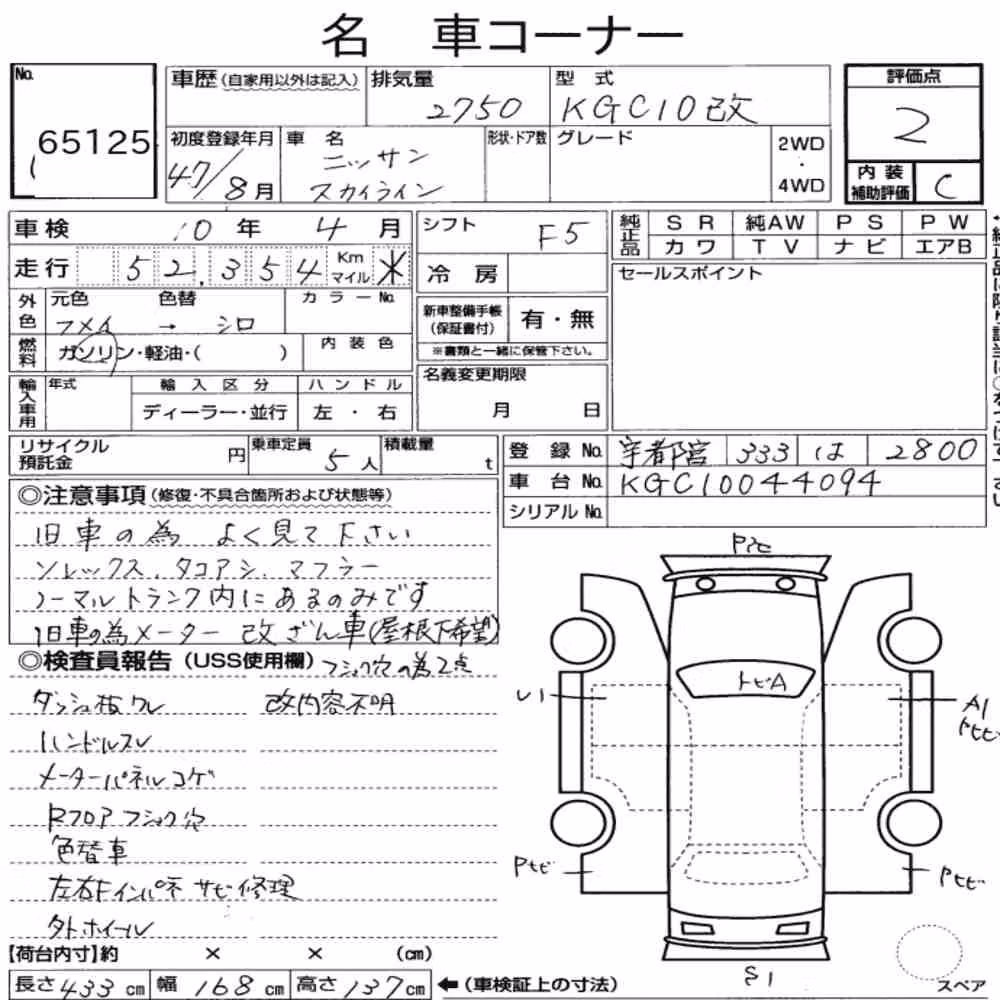 名 車コーナー
No. 65125
車歴(自家用以外は記入)
排気量 2750
型式 KGC10改
評価点 2
初度登録年月 47/8月
車名 ニッサン スカイライン
形状・ドア数
グレード
2WD・4WD
内装補助評価 C
車検 10年 4月
走行 52,354 Km マイル *
シフト F5
冷房
純正品 SR 純AW PS PW
カワ TV ナビ エアB
セールスポイント
外色 元色 色替 カラーNo.
→ シロ
燃料 ガソリン・軽油・( )
内装色
新車整備手帳(保証書付) 有・無
※書類と一緒に保管下さい。
輸入車用 年式 輸入区分 ハンドル
ディーラー・並行 左・右
名義変更期限
月 日
リサイクル預託金 円
乗車定員 5人
積載量 t
登録No. 宇都宮 333 は 2800
車台No. KGC10044094
シリアルNo.
◎注意事項(修復・不具合箇所および状態等)
旧車の為 よく見て下さい
ソレックス、タコアシ、マフラー
ノーマルトランク内にあるのみです
旧車の為メーター 改ざん車(屋根下希望)
◎検査員報告(USS使用欄)
フショク穴の為2点
ダッシュ板ワレ 改内容不明
ハンドルスレ
メーターパネルコゲ
Rフロアフショク穴
色替車
左右Fインパネ サビ修理
外ホイール
【荷台内寸】約 × × (cm)
長さ433cm 幅168cm 高さ137cm ←(車検証上の寸法)
トビA
A1
Pサビ
Pサビ
S1
スペア